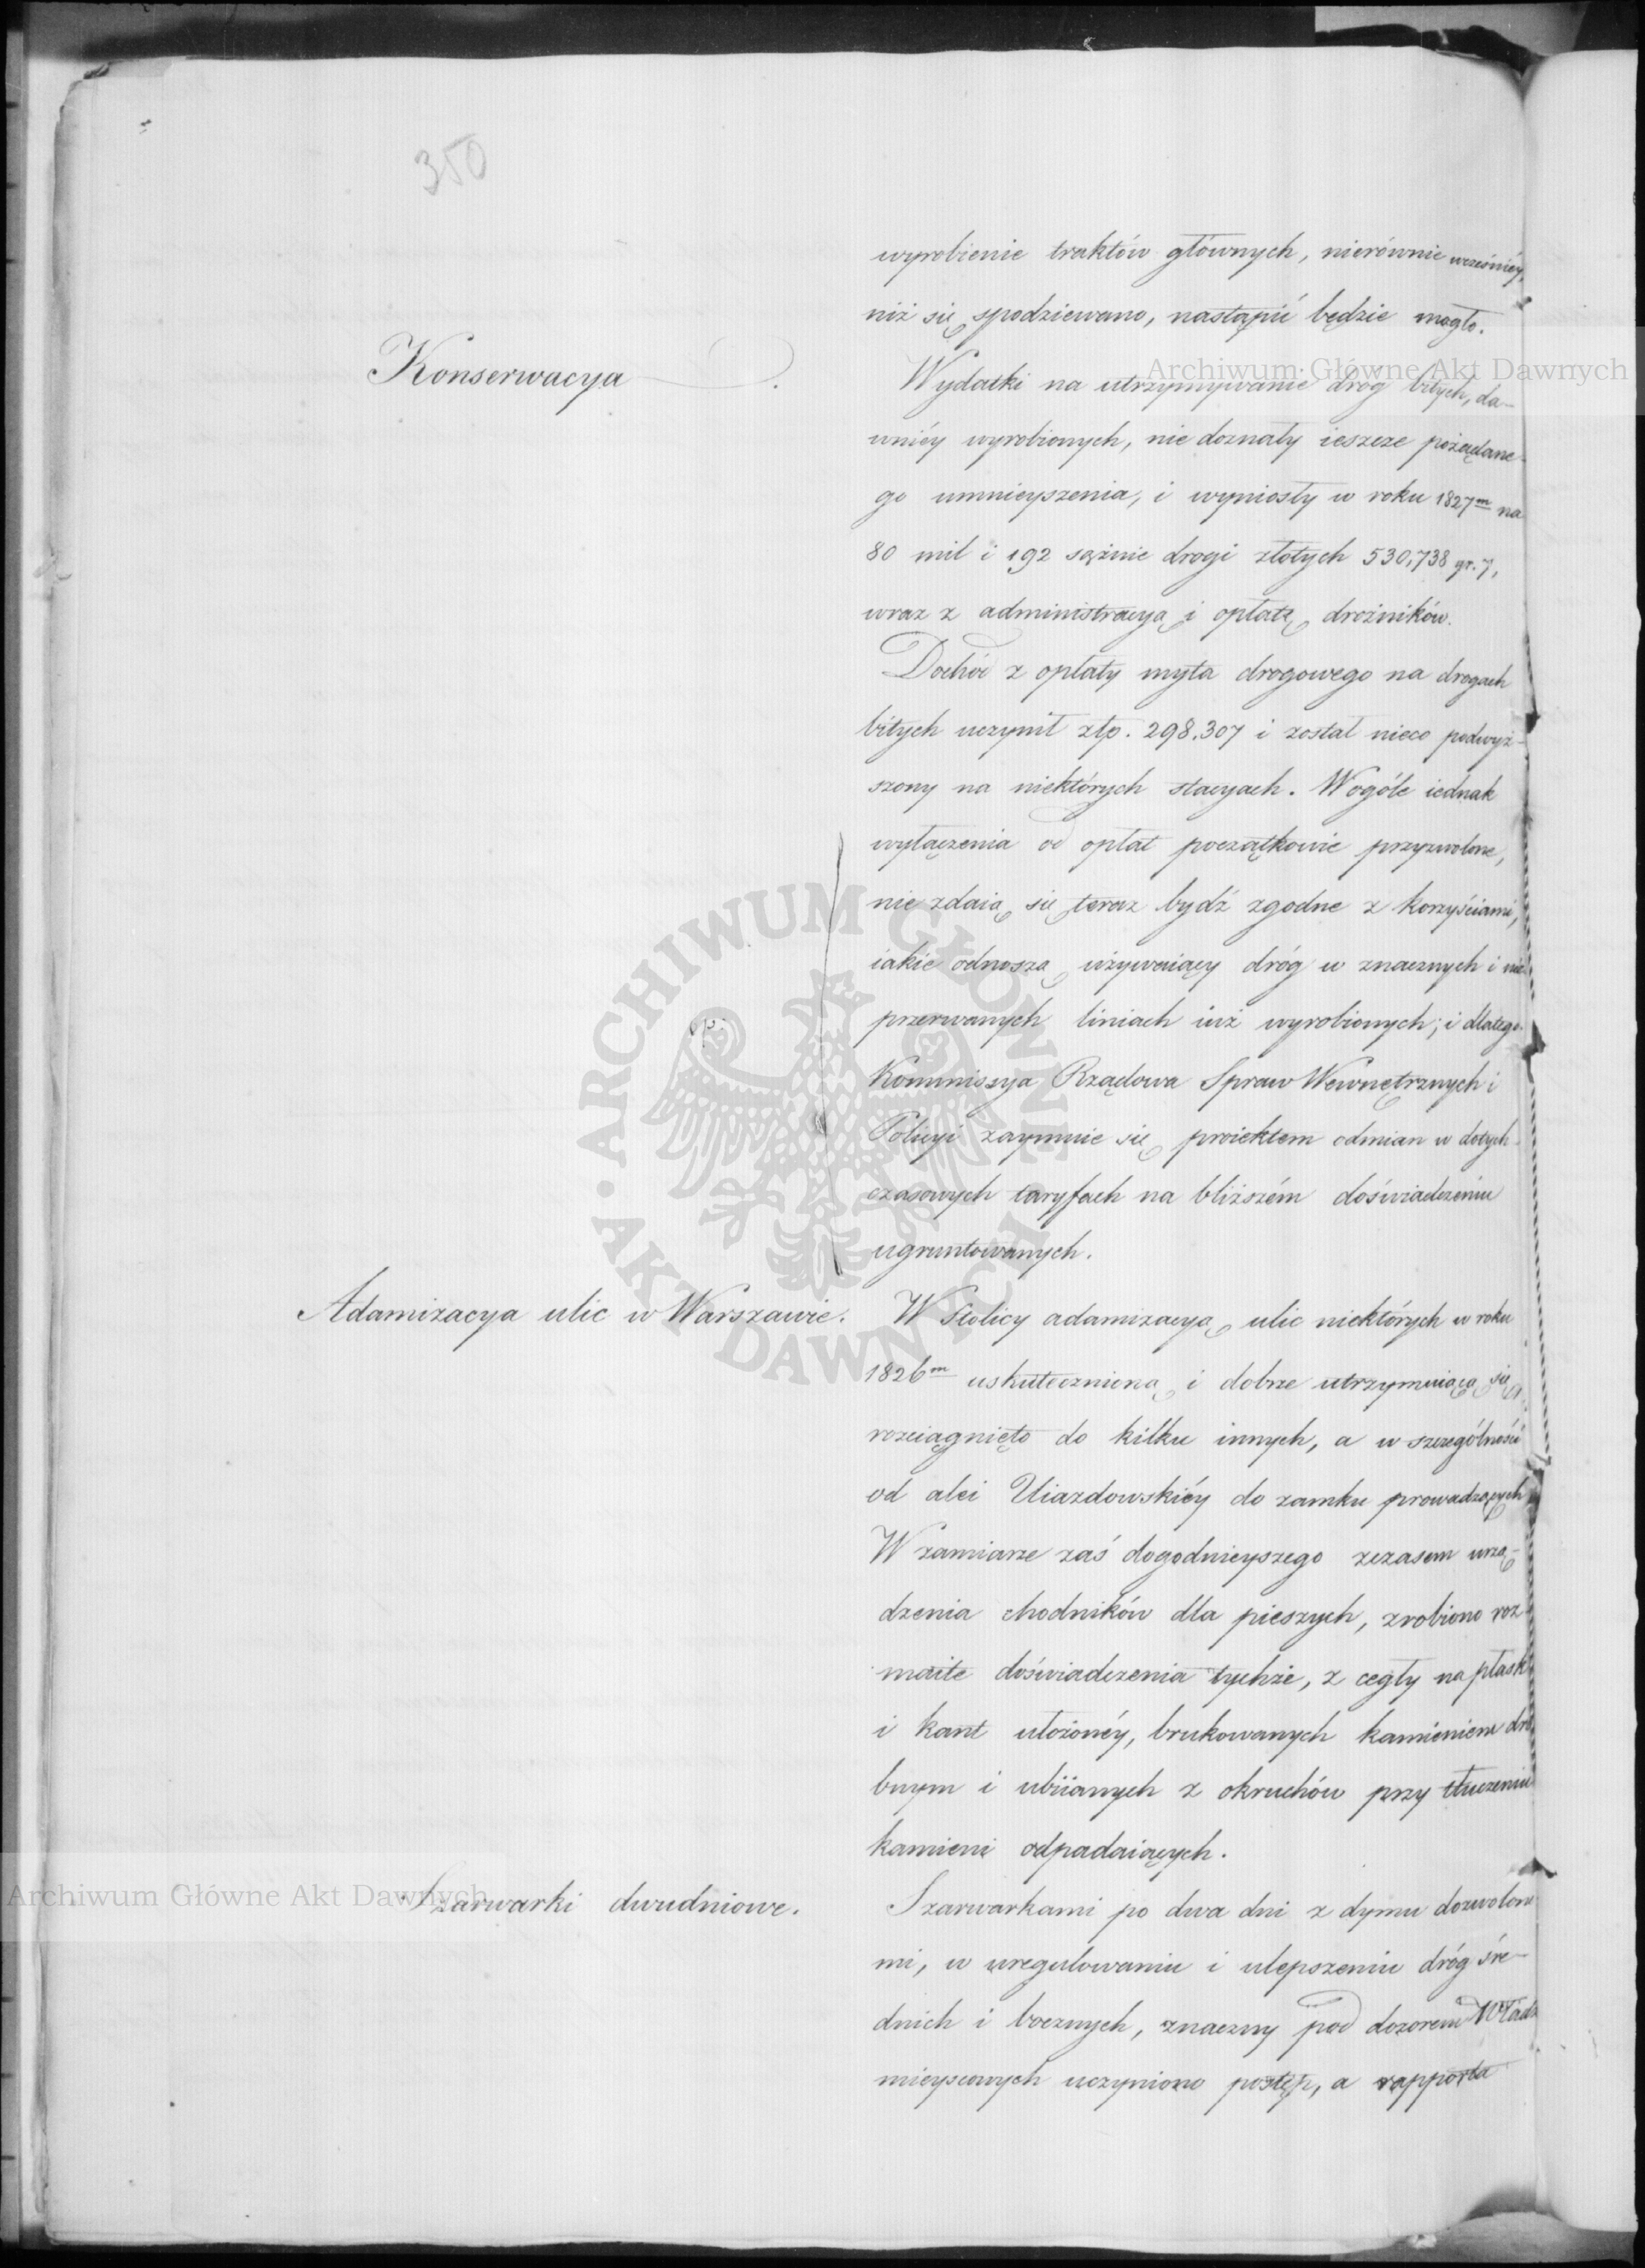 350
wyrobienie traktów głównych, nierównie wcześniéy,
niż się spodziewano, nastąpić będzie mogło.
Konserwacya.
Wydatki na utrzymywanie dróg bitych, da-
wniéy wyrobionych, nie doznały ieszcze pożądane-
go umnieyszenia, i wyniosły w roku 1827m na
80 mil i 192 sążnie drogi złotych 530,738 gr. 7,
wraz z administracyą i opłatą drożników.
Dochód z opłaty myta drogowego na drogach
bitych uczynił złp. 298.307 i został nieco podwyż-
szony na niektórych stacyach. Wogóle iednak
wyłączenia od opłat początkowie przyzwolone,
nie zdaią się teraz bydź zgodne z korzyściami,
iakie odnoszą używaiący dróg w znacznych i nie-
przerwanych liniach iuż wyrobionych; i dlatego
Kommissya Rządowa Spraw Wewnętrznych i
Policyi zaymuie się proiektem odmian w dotych-
czasowych taryfach na bliższém doświadczeniu
ugruntowanych.
Adamizacya ulic w Warszawie.
W Stolicy adamizacyą ulic niektórych w roku
1826m uskutecznioną i dobrze utrzymuiącą się,
rozciągnięto do kilku innych, a w szczególności
od alei Uiazdowskiéy do zamku prowadzących
W zamiarze zaś dogodnieyszego zczasem urzą-
dzenia chodników dla pieszych, zrobiono roz-
maite doświadczenia tychże, z cegły na płask
i kant ułożonéy, brukowanych kamieniem dro
bnym i ubiianych z okruchów przy tłuczeniu
kamieni odpadaiących.
Szarwarki dwudniowe.
Szarwarkami po dwa dni z dymu dozwolone
mi, w uregulowaniu i ulepszeniu dróg śre-
dnich i bocznych, znaczny pod dozorem Władz
mieyscowych uczyniono postęp, a rapporta
Archiwum Główne Akt Dawnych
Archiwum Główne Akt Dawnych
ARCHIWUM GŁÓWNE · AKT DAWNYCH ·